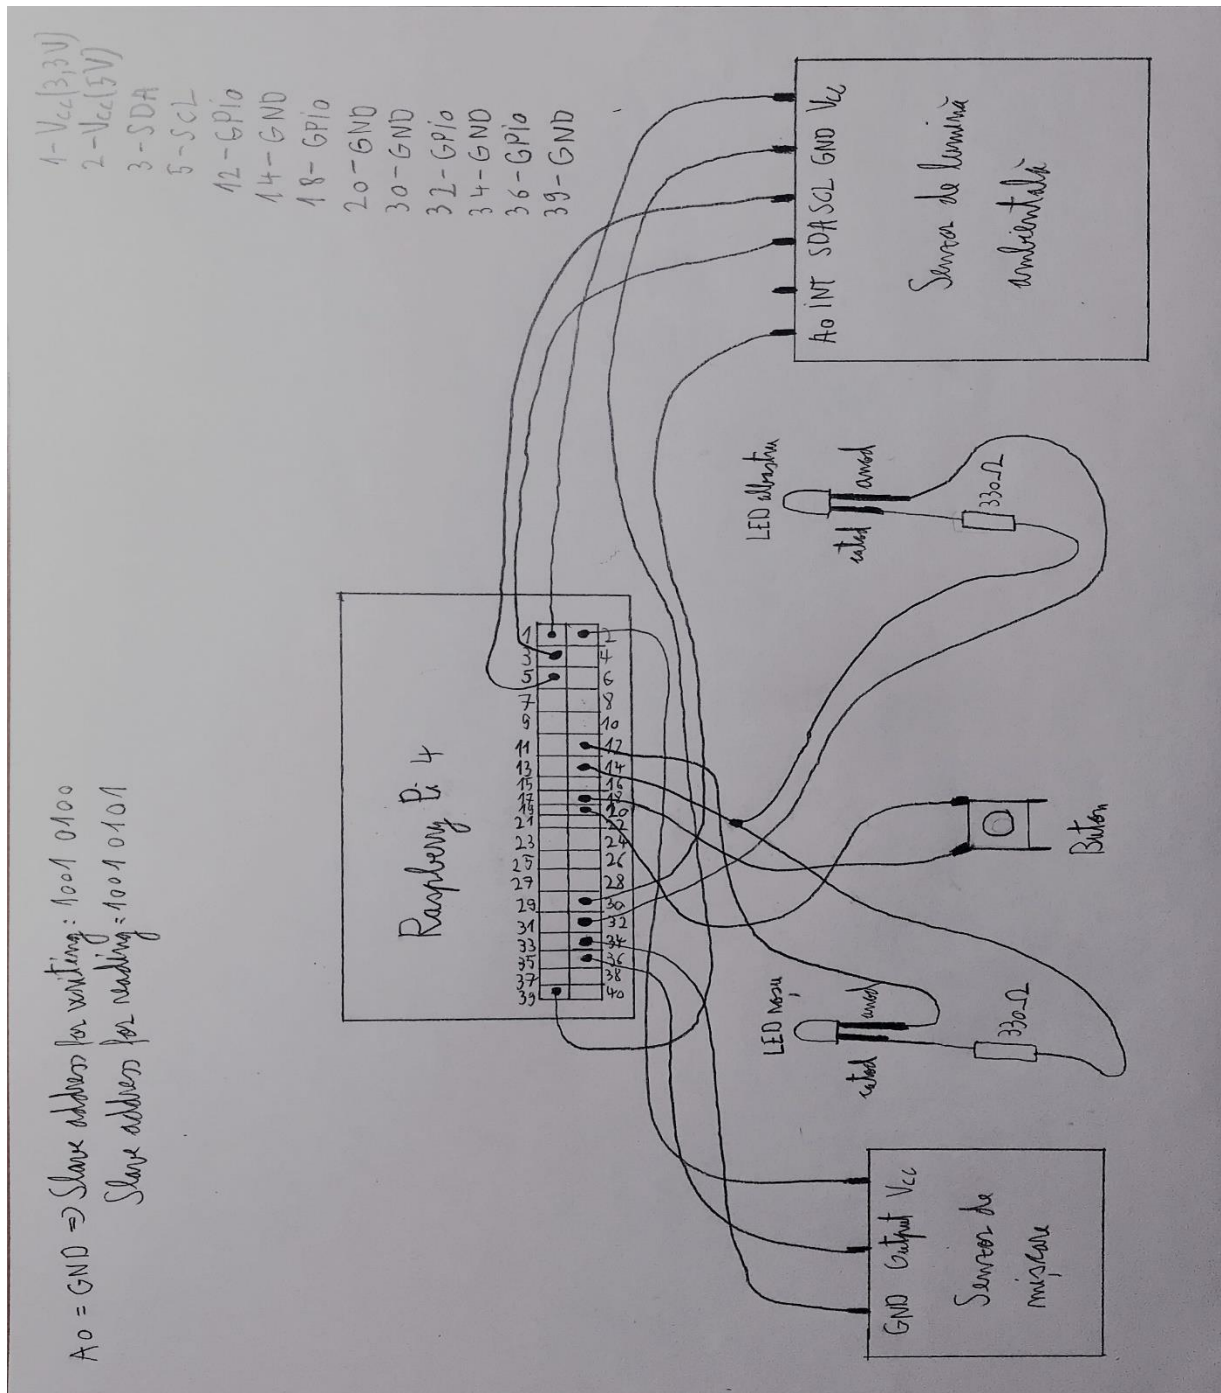 A0 = GND => Slave address for writing: 1001 0100
Slave address for reading: 1001 0101
1-Vcc(3,3V)
2-Vcc(5V)
3-SDA
5-SCL
12-GPio
14-GND
18-GPio
20-GND
30-GND
32-GPio
34-GND
36-GPio
39-GND
Raspberry Pi 4
1 2
3 4
5 6
7 8
9 10
11 12
13 14
15 16
17 18
19 20
21 22
23 24
25 26
27 28
29 30
31 32
33 34
35 36
37 38
39 40
GND Output Vcc
Senzor de
mișcare
LED roșu
catod anod
330Ω
Buton
LED albastru
catod anod
330Ω
A0 INT SDA SCL GND Vcc
Senzor de lumină
ambientală